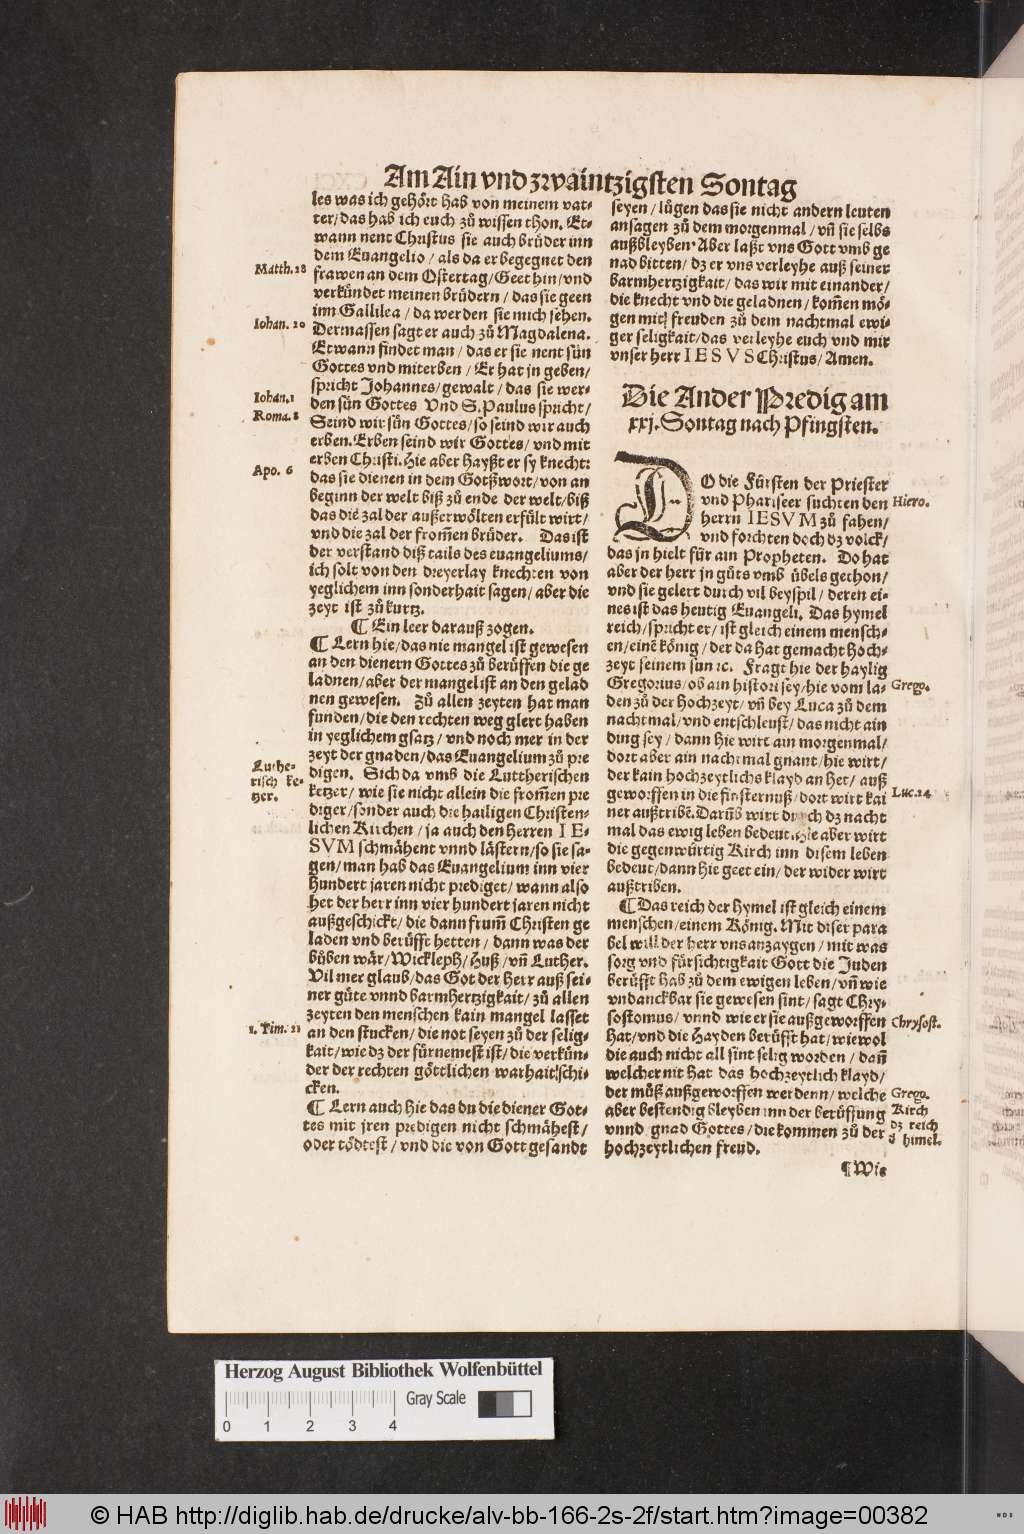 Am Ain vnd zwaintzigsten Sontag
les was ich gehört hab von meinem vat-
ter/das hab ich euch zů wissen thon. Et-
wann nent Christus sie auch brůder inn
dem Euangelio / als da er begegnet den
Matth. 28
frawen an dem Ostertag/Geet hin/vnd
verkündet meinen brüdern / das sie geen
inn Gallilea / da werden sie mich sehen.
Iohan. 20
Dermassen sagt er auch zů Magdalena.
Etwann findet man / das er sie nent sün
Gottes vnd miterben / Er hat in geben/
spricht Johannes/gewalt / das sie wer-
Iohan. 1
den sün Gottes Vnd S. Paulus spricht/
Roma. 8
Seind wir sün Gottes/so seind wir auch
erben. Erben seind wir Gottes/ vnd mit
erben Christi. Hie aber hayßt er sy knecht:
Apo. 6
das sie dienen in dem Gotßwort/von an
beginn der welt biß zů ende der welt/biß
das die zal der außerwölten erfült wirt/
vnd die zal der from̄en brůder. Das ist
der verstand diß tails des euangeliums/
ich solt von den dreyerlay knechten von
yeglichem inn sonderhait sagen/ aber die
zeyt ist zů kurtz.
¶ Ein leer darauß zogen.
¶ Lern hie/das nie mangel ist gewesen
an den dienern Gottes zů berůffen die ge
ladnen/aber der mangel ist an den gelad
nen gewesen. Zů allen zeyten hat man
funden/die den rechten weg glert haben
in yeglichem gsatz/ vnd noch mer in der
zeyt der gnaden/das Euangelium zů pre
Luthe-
risch ke-
tzer.
digen. Sich da vmb die Luttherischen
ketzer/ wie sie nicht allein die from̄en pre
diger/sonder auch die hailigen Christen-
lichen Kirchen / ja auch den Herren IE-
SVM schmähent vnnd lästern/so sie sa-
gen/man hab das Euangelium inn vier
hundert jaren nicht prediget/ wann also
het der herr inn vier hundert jaren nicht
außgeschickt/die dann frum̄ Christen ge
laden vnd berůfft hetten / dann was der
bůben wär/Wickleph/Huß/ vn̄ Luther.
Vil mer glaub/das Got der Herr auß sei-
ner güte vnnd barmhertzigkait/ zů allen
zeyten den menschen kain mangel lasset
1. Tim. 21
an den stucken/die not seyen zů der selig-
kait/wie dz der fürnemest ist/die verkün-
der der rechten göttlichen warhait schi-
cken.
¶ Lern auch hie das du die diener Got-
tes mit jren predigen nicht schmähest/
oder tödtest / vnd die von Gott gesandt
seyen / lůgen das sie nicht andern leuten
ansagen zů dem morgenmal / vn̄ sie selbs
außbleyben. Aber laßt vns Gott vmb ge
nad bitten/ dz er vns verleyhe auß seiner
barmhertzigkait/ das wir mit einander/
die knecht vnd die geladnen/ kom̄en mö-
gen mit freuden zů dem nachtmal ewi-
ger seligkait/das verleyhe euch vnd mir
vnser herr IESVS Christus/ Amen.
Die Ander Predig am
xxj. Sontag nach Pfingsten.
DO die Fürsten der Priester
vnd Phariseer suchten den
Hiero.
herrn IESVM zů fahen/
vnd forchten doch dz volck/
das jn hielt für ain Propheten. Do hat
aber der herr jn gůts vmb übels gethon/
vnd sie gelert durch vil beyspil/ deren ei-
nes ist das heutig Euangeli. Das hymel
reich/spricht er/ ist gleich einem mensch-
en/einē könig/ der da hat gemacht hoch-
zeyt seinem sun ꝛc. Fragt hie der haylig
Gregorius/ob ain histori sey/hie vom la-
Grego.
den zů der hochzeyt/ vn̄ bey Luca zů dem
nachtmal/vnd entschleust/das nicht ain
ding sey / dann hie wirt ain morgenmal/
dort aber ain nachtmal gnant/hie wirt/
der kain hochzeytlichs klayd an het/ auß
geworffen in die finsternuß/dort wirt kai
Luc. 14
ner außtribē. Darūb wirt durch dz nacht
mal das ewig leben bedeut. Hie aber wirt
die gegenwürtig Kirch inn disem leben
bedeut/dann hie geet ein/ der wider wirt
außtriben.
¶ Das reich der hymel ist gleich einem
menschen/einem König. Mit diser para
bel will der herr vns anzaygen / mit was
sorg vnd fürsichtigkait Gott die Juden
berůfft hab zů dem ewigen leben/ vn̄ wie
vndanckbar sie gewesen sint/ sagt Chry-
sostomus/ vnnd wie er sie außgeworffen
Chrysost.
hat/vnd die Hayden berůfft hat/wiewol
die auch nicht all sint selig worden / dan̄
welcher nit hat das hochzeytlich klayd/
der můß außgeworffen werdenn/ welche
Grego.
aber bestendig bleyben inn der berůffung
Kirch
dz reich
d himel.
vnnd gnad Gottes/ die kommen zů der
hochzeytlichen freud.
¶ Wie
Herzog August Bibliothek Wolfenbüttel
Gray Scale
0 1 2 3 4
© HAB http://diglib.hab.de/drucke/alv-bb-166-2s-2f/start.htm?image=00382